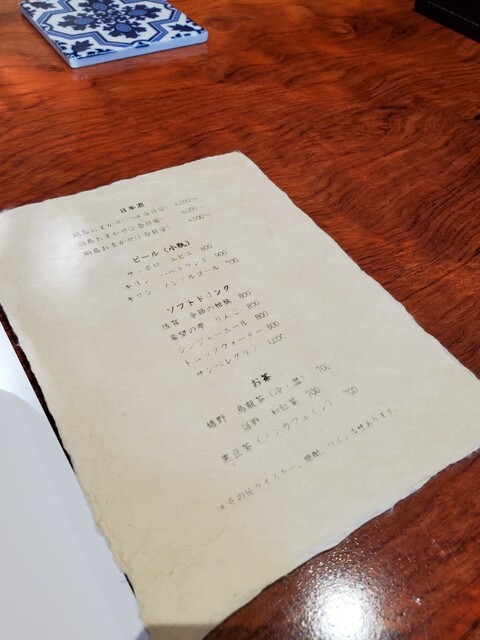 日本酒
鍋島おまかせ
鍋島おまかせ
鍋島おまかせ
ビール(小瓶)
サッポロ エビス 800
キリン ハートランド 900
キリン ノンアルコール 700
ソフトドリンク
佐賀 季節の柑橘 800
希望の雫 りんご 800
ジンジャーエール 800
トニックウォーター 800
サンペレグリノ
お茶
嬉野 烏龍茶(冷・温) 700
嬉野 和紅茶 700
黒豆茶(ノンカフェイン) 700
*その他ウイスキー、焼酎、ワイン各種あります。